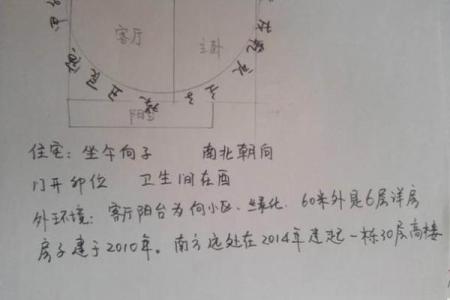 客厅
主卧
乾
寅
艮
丑
癸
子
壬
阳台
住宅：坐午向子 南北朝向
门开卯位 卫生间在酉
外环境：客厅阳台为向小区、绿化、60米外是6层洋房
房子建于2010年。南方远处在2014年建起一栋30层高楼